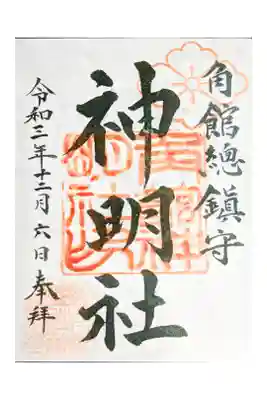 角館總鎮守
神明社
令和三年十二月六日奉拝